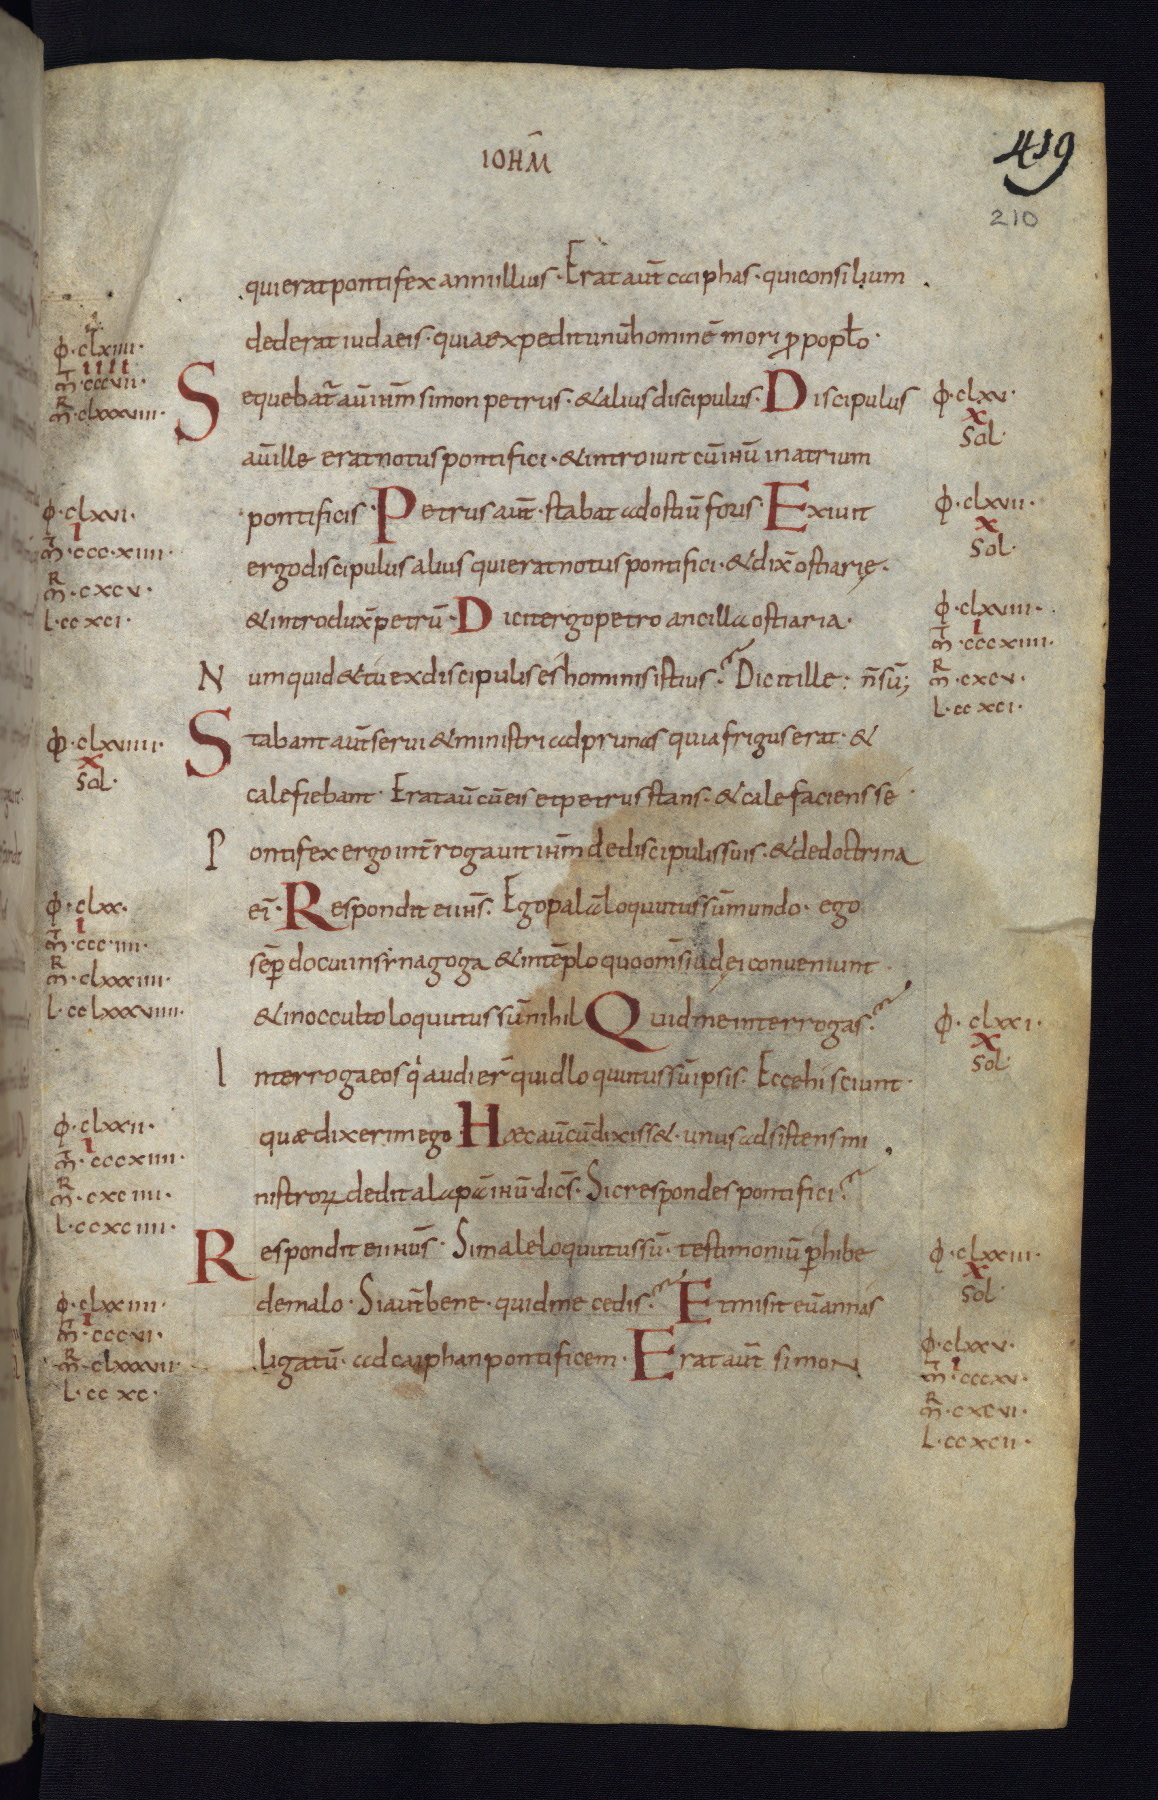 IOHM̅
419
210
qui erat pontifex anni illius · Erat aut̅ caiphas · qui consilium
dederat iudaeis · quia expedit unu̅ homine̅ mori ꝓ popl̅o ·
Sequebat̅ au̅ ih̅m simon petrus · & alius discipulus · Discipulus
au̅ ille erat notus pontifici · & introiuit cu̅ ih̅u in atrium
pontificis · Petrus aut̅ · stabat ad ostiu̅ foris · Exiuit
ergo discipulus alius qui erat notus pontifici · & dix̅ ostiarię ·
& introdux̅ petru̅ · Dicit ergo petro ancilla ostiaria ·
Numquid & tú ex discipulis és hominis istius? Dicit ille : n̅ su̅;
Stabant aut̅ serui & ministri ad prunas quia frigus erat · &
calefiebant · Erat au̅ cu̅ eis et petrus stans · & calefaciens sé ·
Pontifex ergo int̅rogauit ih̅m de discipulis suis · & de doctrina
ei᾽ · Respondit ei ih̅s · Ego pala̅ loquutus su̅ mundo · ego
sep̅ docui in synagoga & in te̅plo quo om̅s iudęi conueniunt ·
& in occulto loquutus su̅ nihil Quid me interrogas?
Interroga eos qⁱ audier̅ quid loquutus su̅ ipsis · Ecce hi sciunt ·
quæ dixerim ego · Hæc au̅ cu̅ dixiss& · unus adsistens mi
nistroꝝ dedit alapa̅ ih̅u · dice̅s · Sic respondes pontifici?
Respondit ei ih̅us · Si male loquutus su̅ · testimoniu̅ ꝑhibe
de malo · Si aut̅ bene · quid me cedis? Et misit eu̅ annas
ligatu̅ · ad caiphan pontificem · Erat aut̅ simon
ϕ · clxiiii ·
iiii
m̅ · cccvii ·
m̅ · clxxxviii ·
ϕ · clxvi ·
i
m̅ · ccc · xiiii ·
m̅ · cxcv ·
L · ccxci ·
ϕ · clxviiii ·
x
Sol ·
ϕ · clxx ·
i
m̅ · ccc · iiii ·
m̅ · clxxxiiii ·
L · cclxxxviiii ·
ϕ · clxxii ·
i
m̅ · cccxiiii ·
m̅ · cxciiii ·
L · ccxciiii ·
ϕ · clxxiiii ·
i
m̅ · cccvi ·
m̅ · clxxxvii ·
L · ccxc ·
ϕ · clxv ·
x
Sol ·
ϕ · clxvii ·
x
Sol ·
ϕ · clxviii ·
i
m̅ · cccxiiii ·
m̅ · cxcv ·
L · ccxci ·
ϕ · clxxi ·
x
Sol ·
ϕ · clxxiii ·
x
Sol
ϕ · clxxv ·
i
m̅ · cccxv ·
m̅ · cxcvi ·
L · ccxcii ·